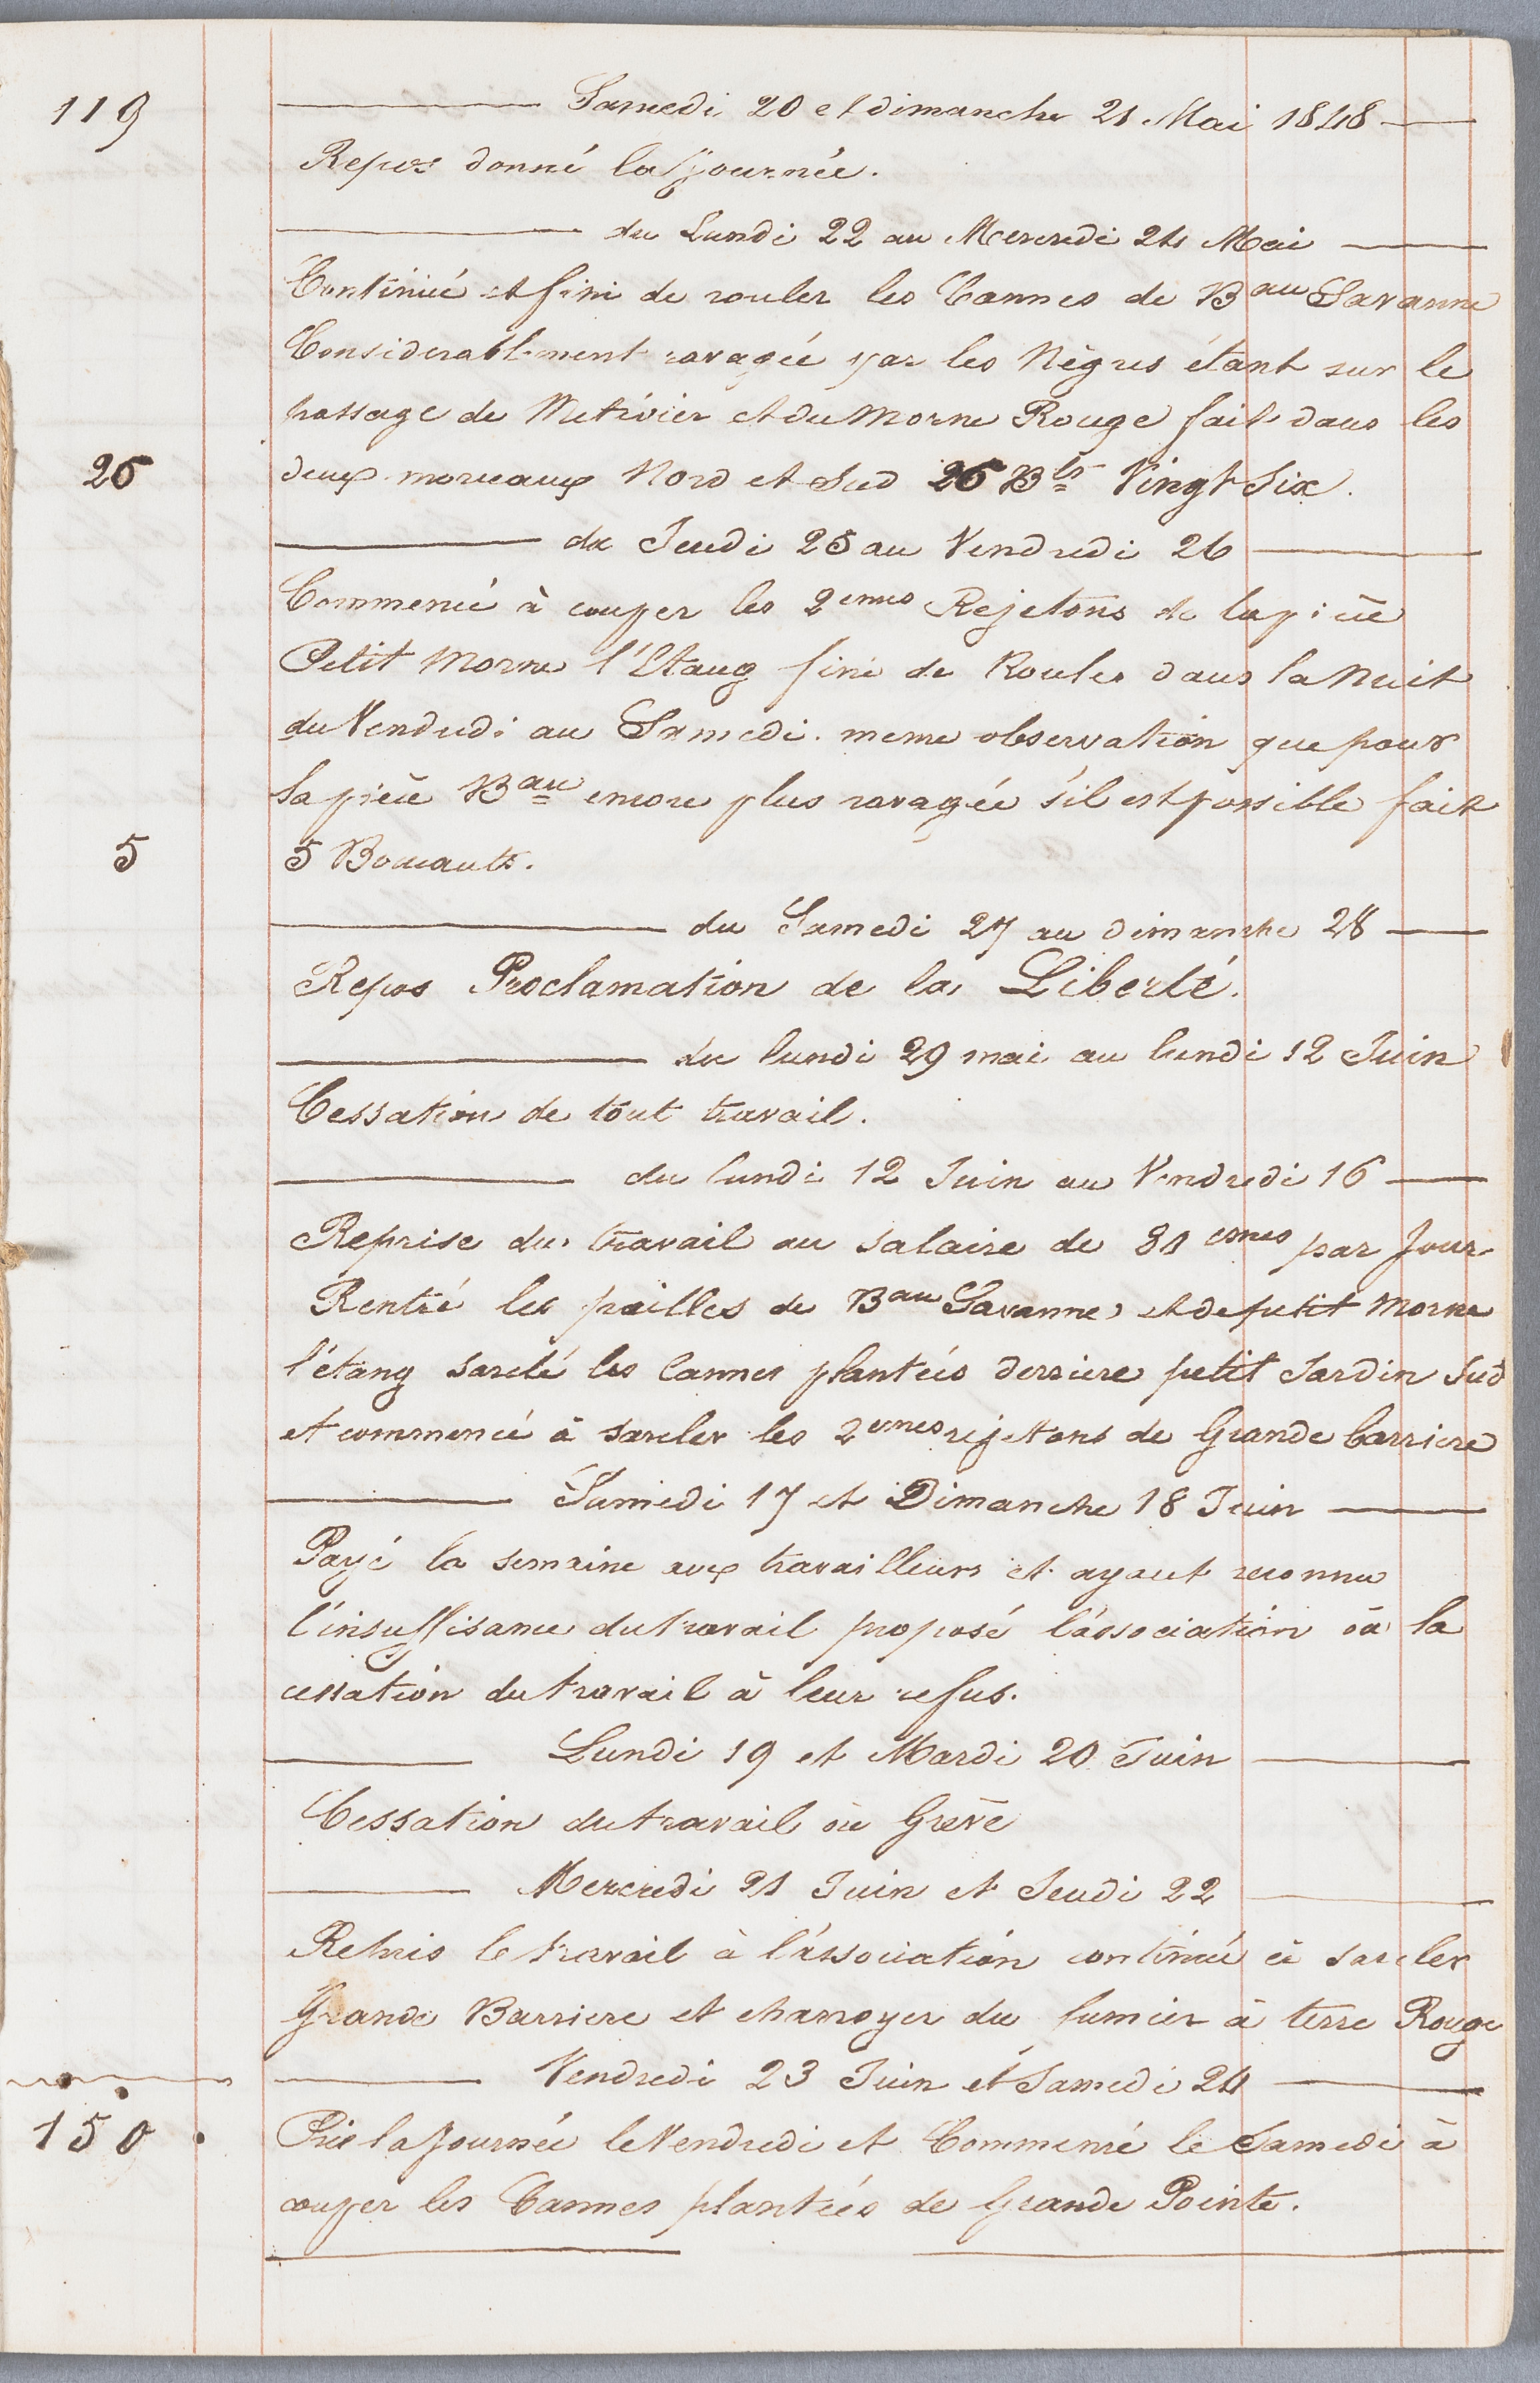 119
Samedi 20 et dimanche 21 Mai 1848
Repos donné la Journée.
du Lundi 22 au Mercredi 24 Mai
Continué et fini de rouler les Cannes de Bau Savanne
Considerablement ravagée par les Nègres étant sur le
passage de Métivier et du Morne Rouge fait dans les
26 deux morceaux Nord et Sud 26 Bts Vingt Six.
du Jeudi 25 au Vendredi 26
Commencé à couper les 2emes Rejetons de la pièce
Petit Morne l'Etang fini de Rouler dans la Nuit
du Vendredi au Samedi. meme observation que pour
la pièce Bau encore plus ravagée s'il est possible fait
5 5 Boucauts.
du Samedi 27 au dimanche 28
Repos Proclamation de la Liberté.
du lundi 29 mai au lundi 12 Juin
Cessation de tout travail.
du lundi 12 Juin au Vendredi 16
Reprise du travail au salaire de cmes par Jour
Rentré les pailles de Bau Savanne, et de petit Morne
l'étang sarclé les Cannes plantées derriere petit Jardin Sud
et commencé à sarcler les 2emes rejettons de Grande barriere
Samedi 17 et Dimanche 18 Juin
Payé la semaine aux travailleurs et ayant reconnu
l'insuffisance du travail proposé l'association où la
cessation du travail à leur refus.
Lundi 19 et Mardi 20 Juin
Cessation du travail où Grève
Mercredi 21 Juin et Jeudi 22
Repris le travail à l'association continué à sarcler
Grande Barriere et charroyer du fumier à terre Rouge
Vendredi 23 Juin et Samedi 24
150. Prie la Journée le Vendredi et Commencé le Samedi à
couper les Cannes plantées de Grande Pointe.